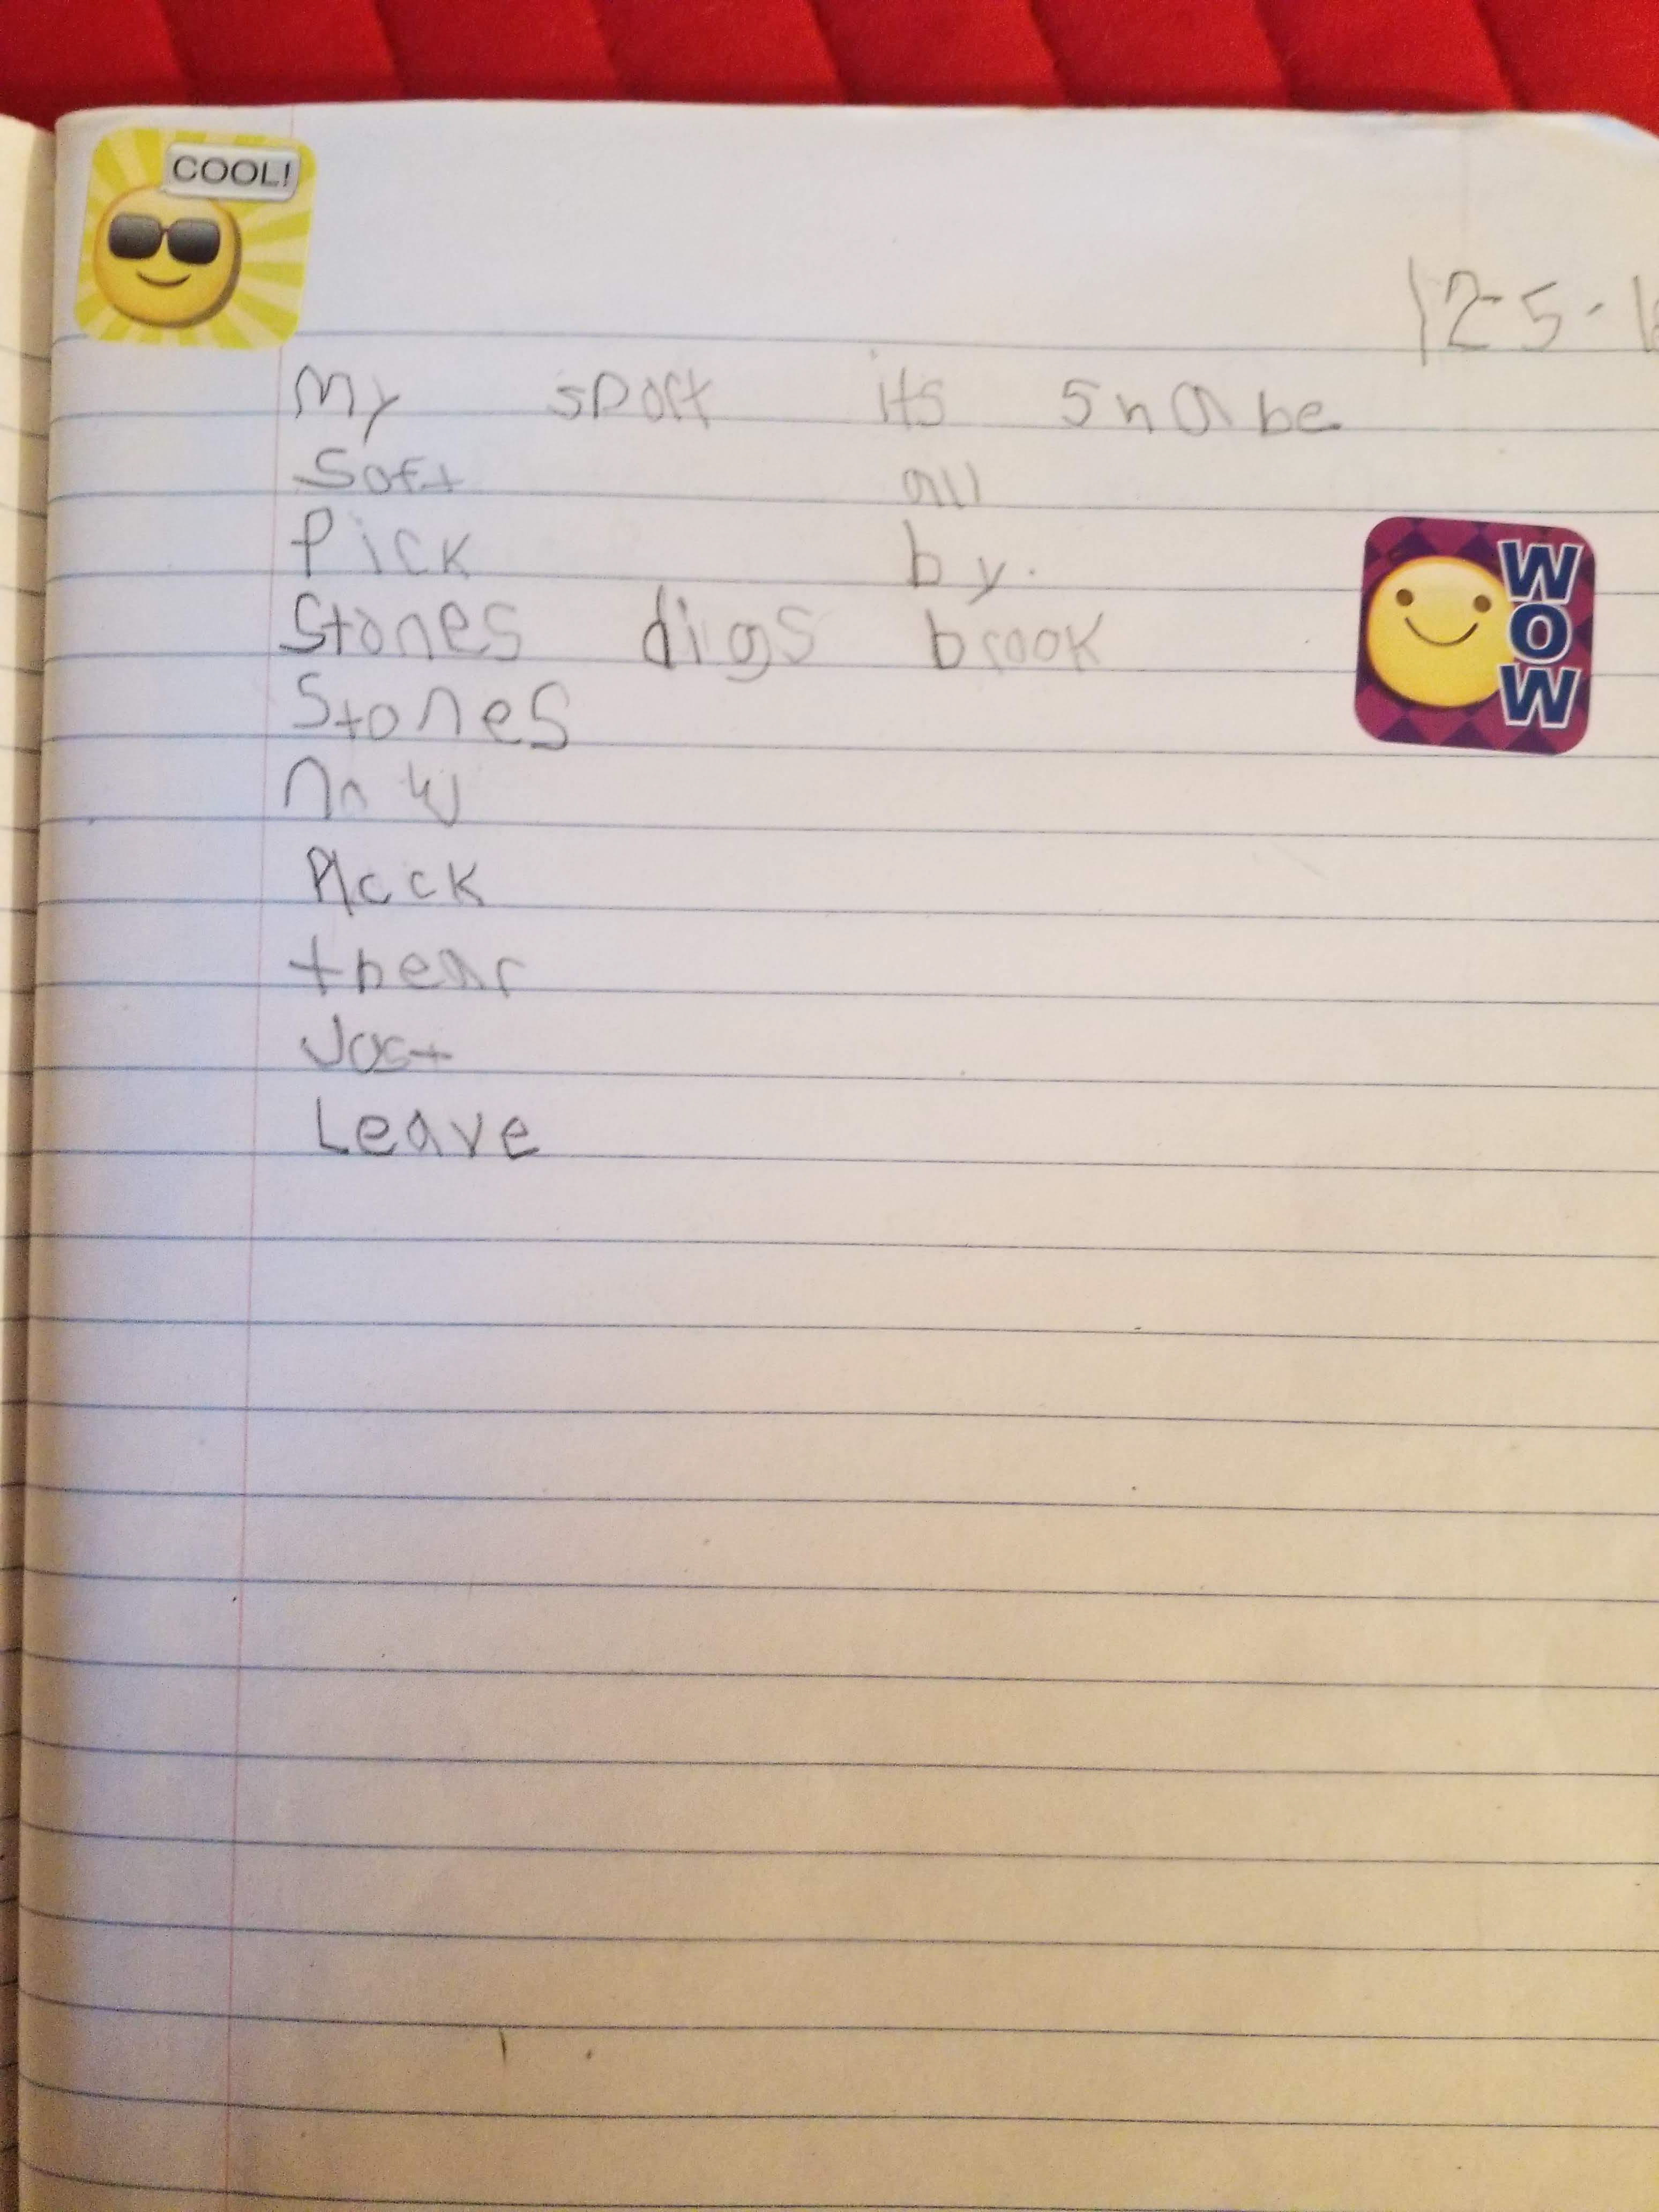 COOL!
12-5-1
My sport its snabe
Soft all
Pick by.
Stones digs brook
Stones
now
Plack
thear
Jost
Leave
WOW